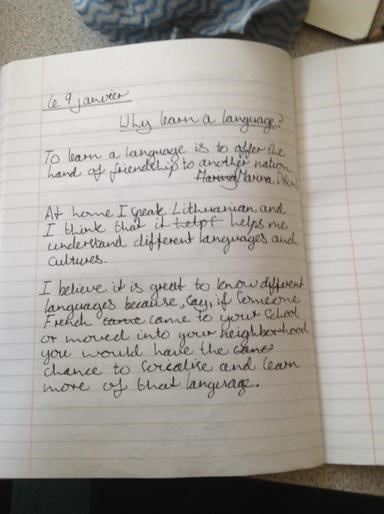 Le 9 janvier
Why learn a language?
To learn a language is to offer the
hand of friendship to another nation
Marina
At home I speak Lithuanian and
I think that it helps me
understand different languages and
cultures.
I believe it is great to know different
languages because, say, if someone
French came to your school
or moved into your neighborhood
you would have the
chance to socialise and learn
more of that language.